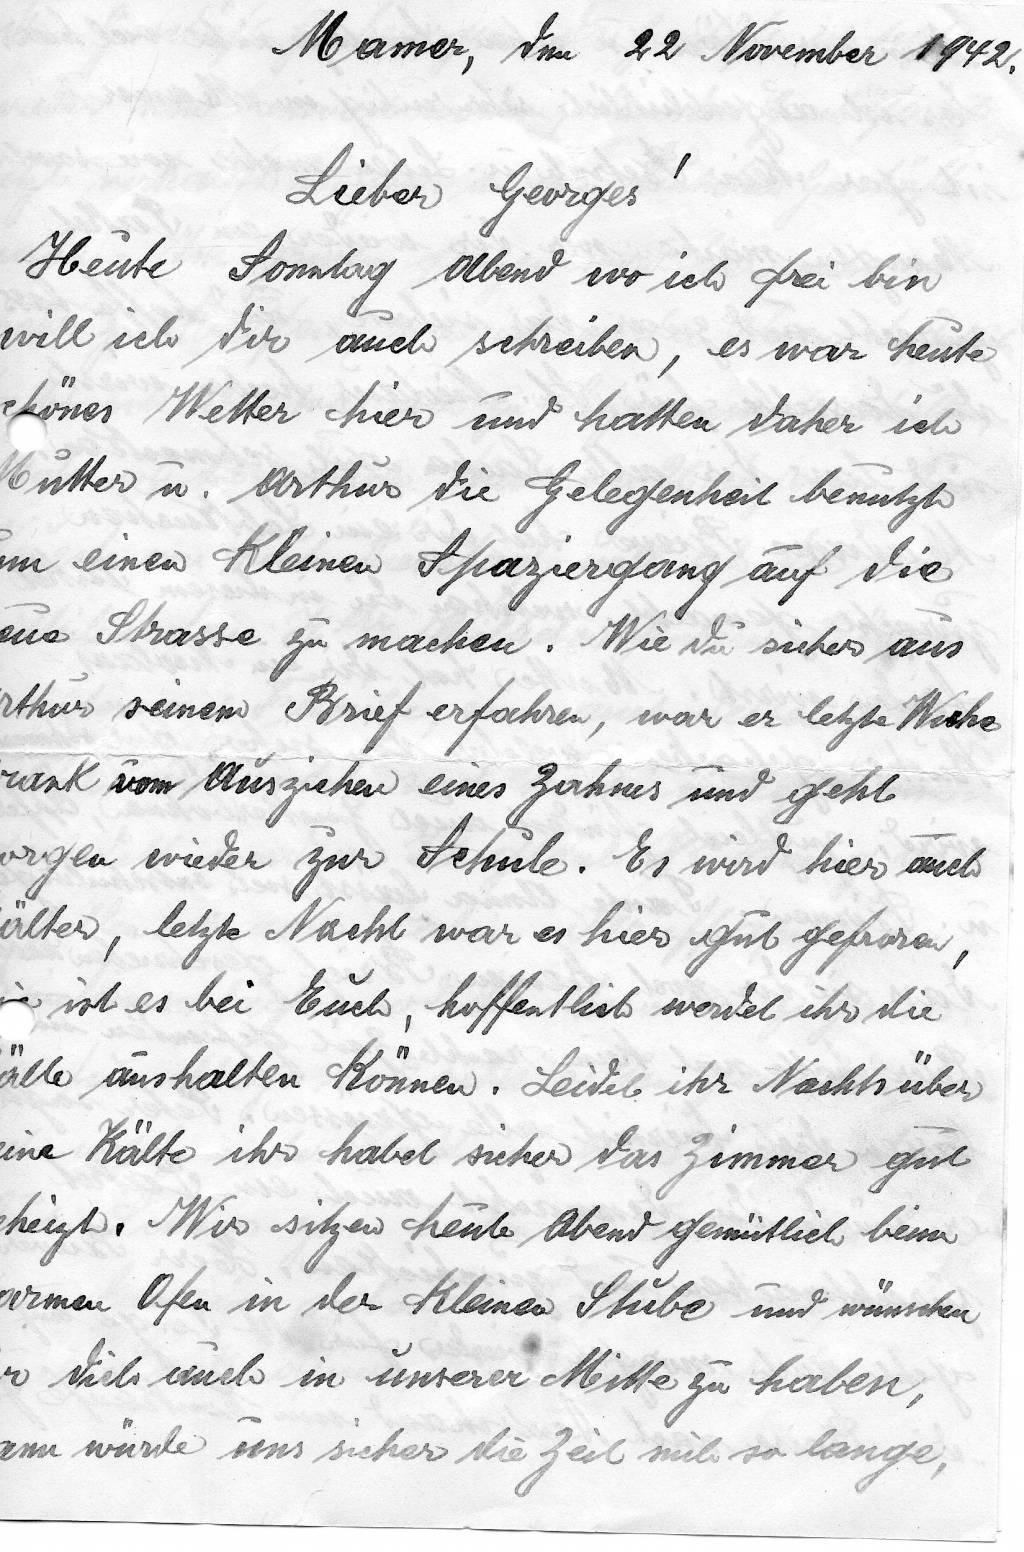 Mamer, den 22 November 1942.
Lieber Georges!
Heute Sonntag Abend wo ich frei bin
will ich dir auch schreiben, es war heute
chönes Wetter hier und hatten daher ich
Mutter u. Arthur die Gelegenheit benutzt
um einen Kleinen Spaziergang auf die
eue Strasse zu machen. Wie du sicher aus
rthur seinem Brief erfahren, war er letzte Woche
rank vom Ausziehen eines Zahnes und geht
orgen wieder zur Schule. Es wird hier auch
älter, letzte Nacht war es hier gut gefroren,
ie ist es bei Euch, hoffentlich werdet ihr die
älte aushalten Können. Leidet ihr Nachts über
eine Kälte ihr habet sicher das Zimmer gut
eheizt. Wir sitzen heute Abend gemütlich beim
armen Ofen in der Kleinen Stube und wünschen
r dich auch in unserer Mitte zu haben,
ann würde uns sicher die Zeit so lange,